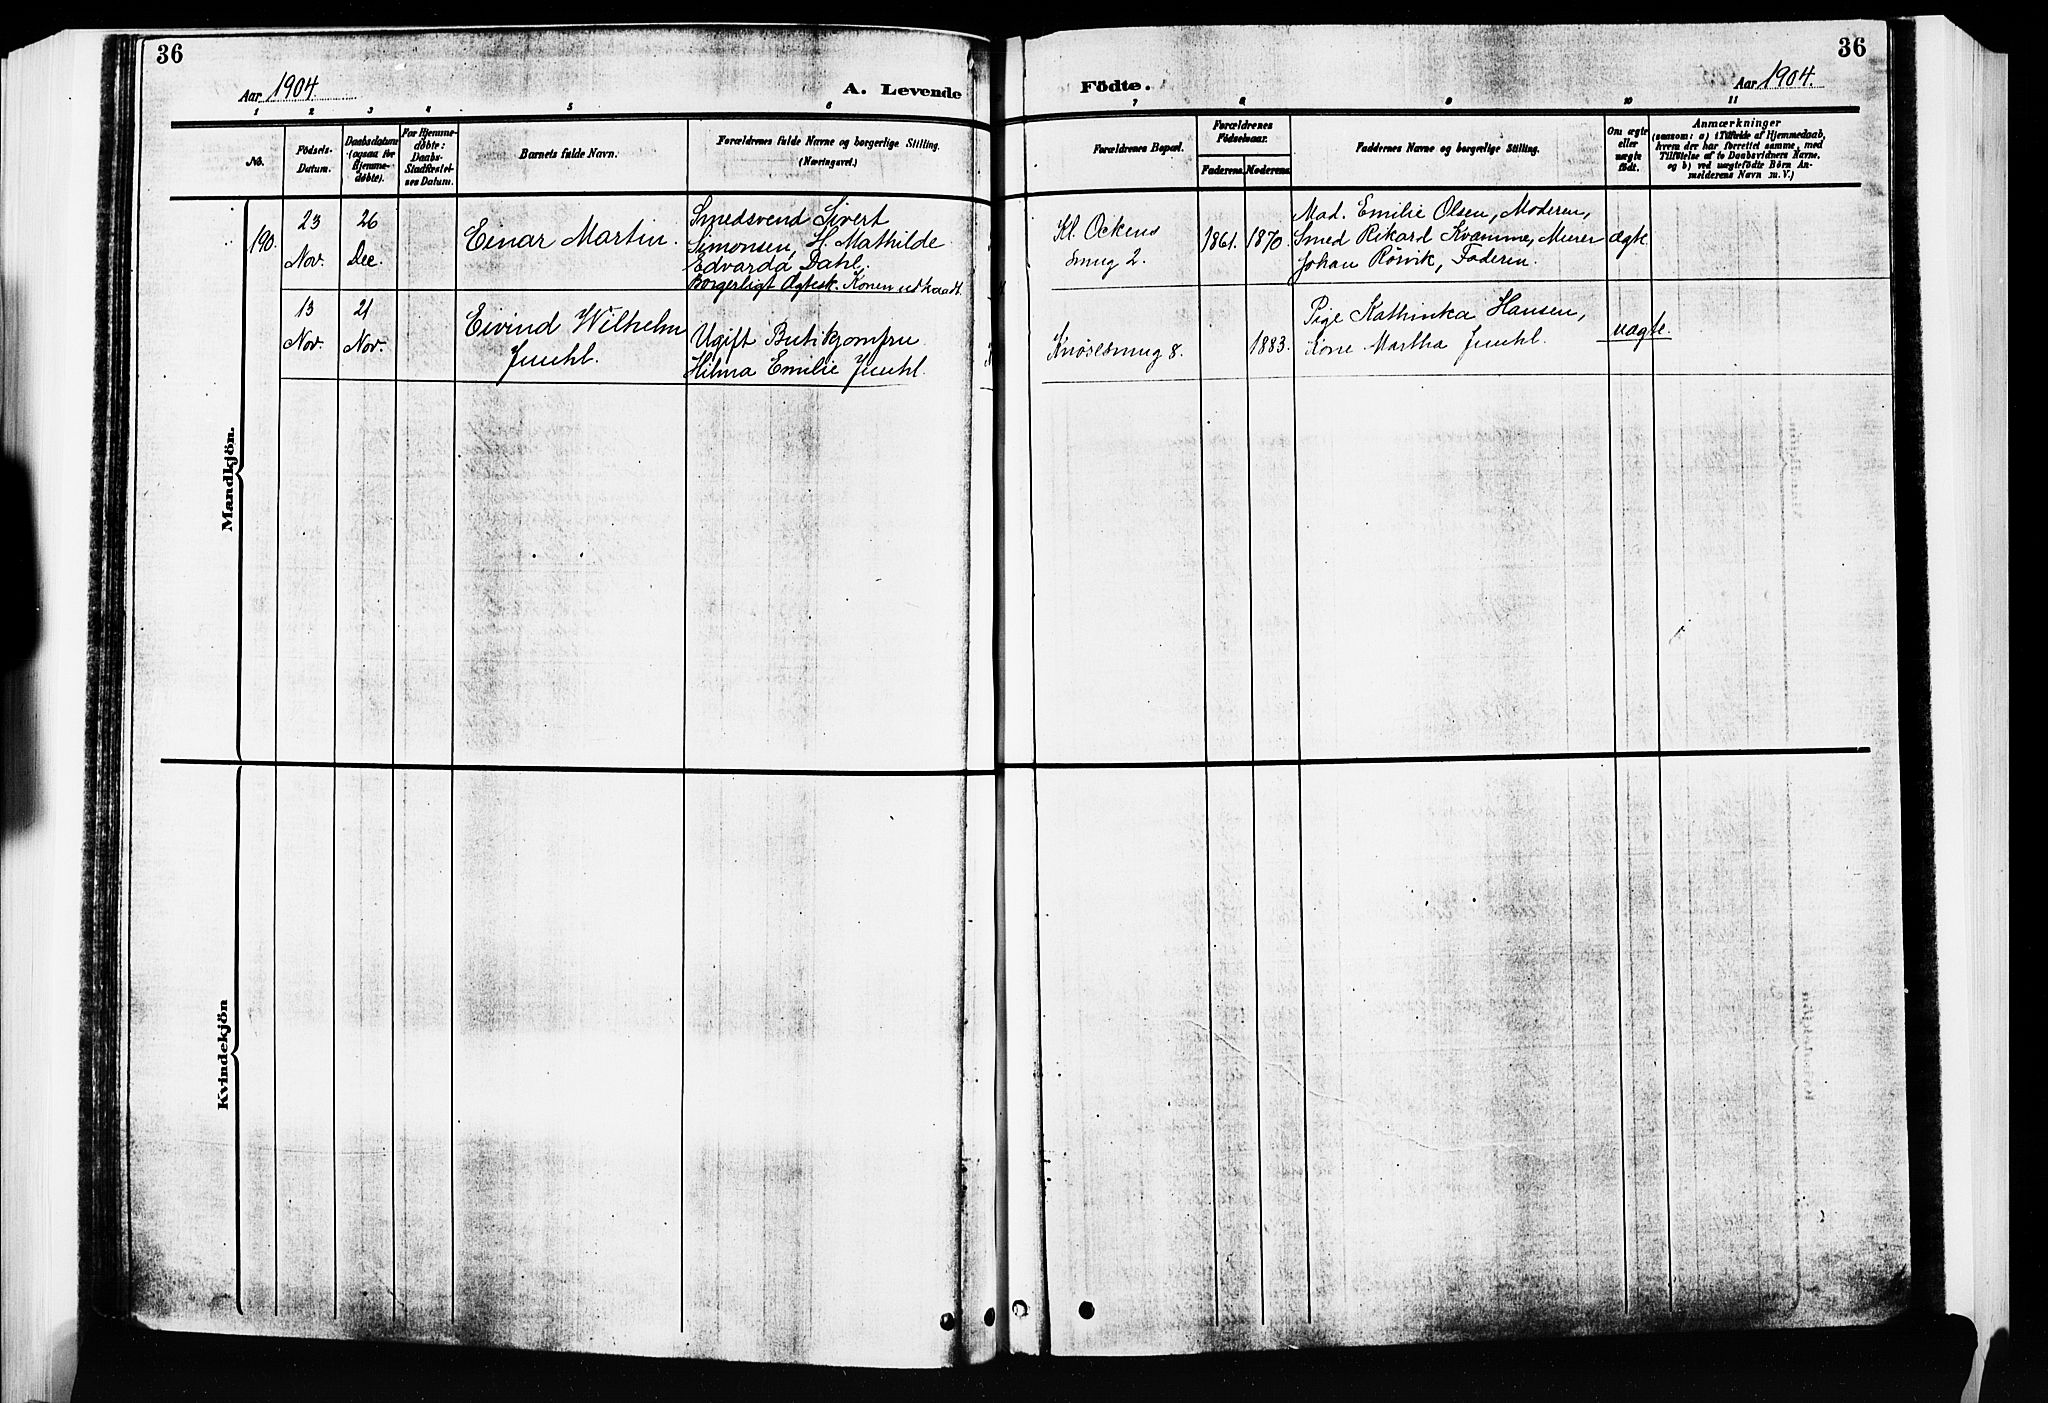 36
36
Aar 1904.
A. Levende
Födte.
Aar 1904.
1 2 3 4 5 6 7 8 9 10 11
No.
Födsels-
Datum.
Daabsdatum
(ogsaa for
Hjemme-
døbte).
For Hjemme-
døbte:
Daabs-
Stadfæstel-
ses Datum.
Barnets fulde Navn.
Forældrenes fulde Navne og borgerlige Stilling.
(Næringsvei.)
Forældrenes Bopæl.
Forældrenes
Födselsaar.
Faderens.
Moderens.
Faddernes Navne og borgerlige Stilling.
Om ægte
eller
uægte
født.
Anmærkninger
(saasom: a) i Tilfælde af Hjemmedaab,
hvem der har forrettet samme, med
Tilføielse af to Daabsvidners Navne,
og b) ved uægtefødte Børn An-
melderens Navn m. V.)
Mandkjön.
190.
23
Nov.
26
Dec.
Einar Martin.
Smedsvend Sivert
Simonsen, H. Mathilde
Edvarda Dahl.
Borgerligt Ægtesk. Konen udtraadt.
Kl. Ockens
smug 2.
1861.
1870.
Mad. Emilie Olsen, Moderen,
Smed Rikard Kvamme, Murer
Johan Rørvik, Faderen.
ægte
13
Nov.
21
Nov.
Eivind Wilhelm
Juuhl.
Ugift Butikjomfru
Hilma Emilie Juuhl.
Knøsesmug 8.
1883.
Pige Kathinka Hansen,
Kone Martha Juuhl.
uægte.
Kvindekjön